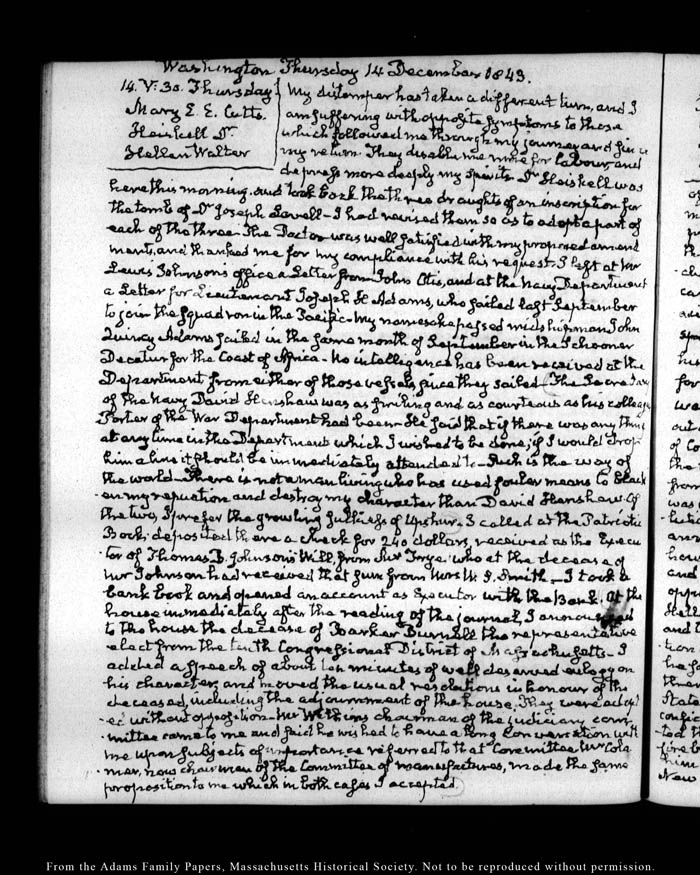 Washington Thursday 14 December 1843.
14. V:30. Thursday
Mary E. E. Cutts.
Heiskell Dr
Hellen Walter
My distemper has taken a different turn, and I
am suffering with opposite symptoms to those
which followed me through my journey and since
my return. They disable me more for labour, and
depress more deeply my spirits. Dr Heiskell was
here this morning, and took back the three draughts of an inscription for
the tomb of Dr Joseph Lovell - I had revised them so as to adopt a part of
each of the three. The Doctor was well satisfied with my proposed amend
ments, and thanked me for my compliance with his request. I left at Mr
Lewis Johnson's office a Letter from John Otis, and at the Navy Department
a Letter for Lieutenant Joseph H Adams, who sailed last September
to join the squadron in the Pacific. My namesake passed midshipman John
Quincy Adams sailed in the same month of September in the Schooner
Decatur for the Coast of Africa - No intelligence has been received at the
Department from either of those vessels since they sailed. The Secretary
of the Navy David Henshaw was as smiling and as courteous as his colleague
Porter of the War Department had been. He said that if there was any thing
at any time in the Department which I wished to be done, if I would drop
him a line it should be immediately attended to - Such is the way of
the world - There is not a man living who has used fouler means to black
en my reputation and destroy my character than David Henshaw. Of
the two, I prefer the growling sulkiness of Upshur. I called at the Patriotic
Bank, deposited there a Check for 240 dollars, received as the Execu
tor of Thomas B. Johnson's Will, from Mr Frye who at the decease of
Mr Johnson had received that sum from Mrs W. S. Smith - I took a
bank book and opened an account as Executor with the Bank. At the
house immediately after the reading of the journal, I announced
to the house the decease of Barker Burnell the representative
elect from the tenth Congressional District of Massachusetts - I
added a speech of about ten minutes of well deserved eulogy on
his character, and moved the usual resolutions in honour of the
deceased, including the adjournment of the house. They were adopt
ed without opposition. Mr Wilkins chairman of the judiciary com
mittee came to me and said he wished to have a long conversation with
me upon subjects of importance referred to that Committee. Mr
now chairman of the Committee of manufactures, made the same
proposition to me which in both cases I accepted.
From the Adams Family Papers, Massachusetts Historical Society. Not to be reproduced without permission.